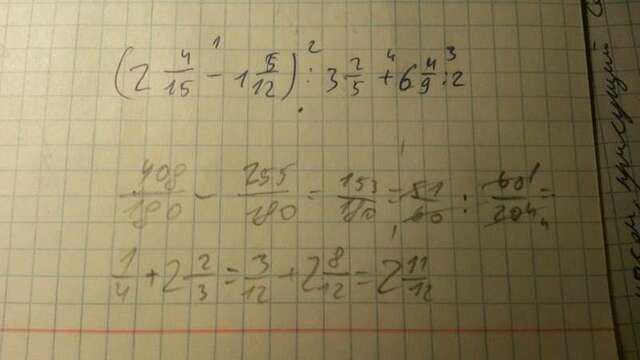 (2 4/15 - 1 5/12) : 3 2/5 + 6 4/9 : 2
1 2 4 3
408/180 - 255/180 = 153/180 = 51/60 : 60/204 =
1/4 + 2 2/3 = 3/12 + 2 8/12 = 2 11/12